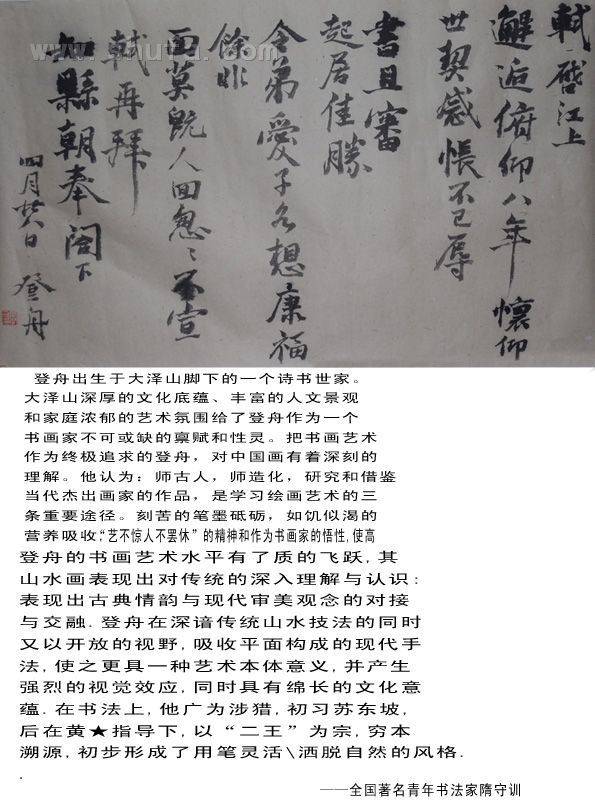 軾啓江上
邂逅俯仰八年懷仰
世契感悵不已辱
書且審
起居佳勝
令弟愛子各想康福
餘非
面莫旣人回怱〻不宣
軾再拜
知縣朝奉閣下
四月廿八日 登舟
登舟出生于大泽山脚下的一个诗书世家。
大泽山深厚的文化底蕴、丰富的人文景观
和家庭浓郁的艺术氛围给了登舟作为一个
书画家不可或缺的禀赋和性灵。把书画艺术
作为终极追求的登舟，对中国画有着深刻的
理解。他认为：师古人，师造化，研究和借鉴
当代杰出画家的作品，是学习绘画艺术的三
条重要途径。刻苦的笔墨砥砺，如饥似渴的
营养吸收，“艺不惊人不罢休”的精神和作为书画家的悟性,使高
登舟的书画艺术水平有了质的飞跃,其
山水画表现出对传统的深入理解与认识:
表现出古典情韵与现代审美观念的对接
与交融.登舟在深谙传统山水技法的同时
又以开放的视野,吸收平面构成的现代手
法,使之更具一种艺术本体意义,并产生
强烈的视觉效应,同时具有绵长的文化意
蕴.在书法上,他广为涉猎,初习苏东坡,
后在黄★指导下,以“二王”为宗,穷本
溯源,初步形成了用笔灵活\洒脱自然的风格.
.
——全国著名青年书法家隋守训